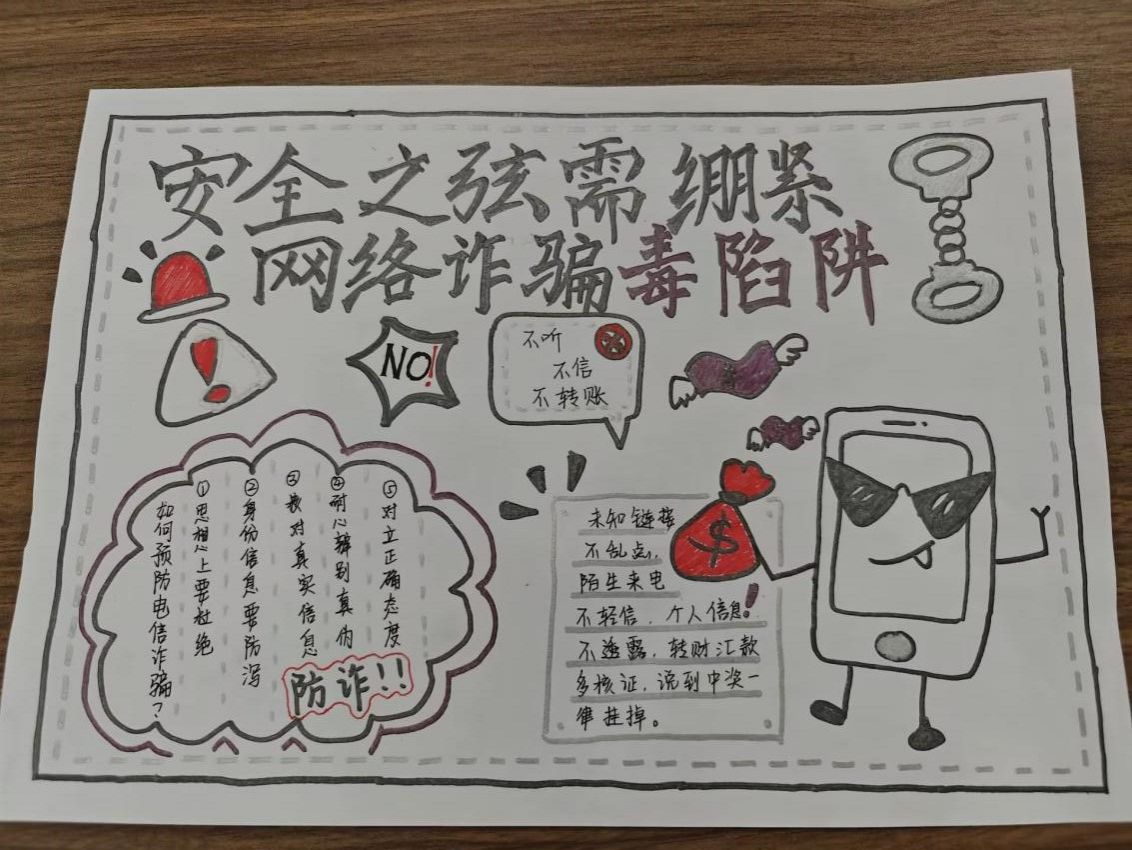 安全之弦需绷紧
网络诈骗毒陷阱
NO!
不听
不信
不转账
如何预防电信诈骗？
①思想上要杜绝
②身份信息要防泻
③核对真实信息
④耐心辨别真伪
⑤对立正确态度
防诈!!
未知链接
不乱点,
陌生来电
不轻信，个人信息!
不透露，转财汇款
多核证，说到中奖一
律挂掉。
$